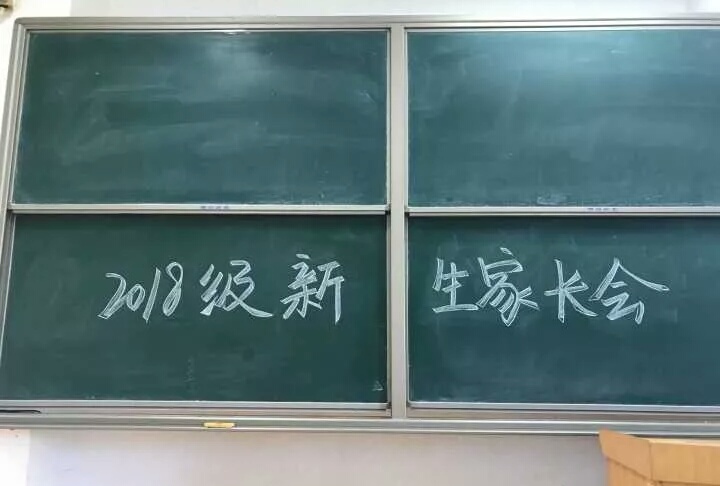 2018级新生家长会